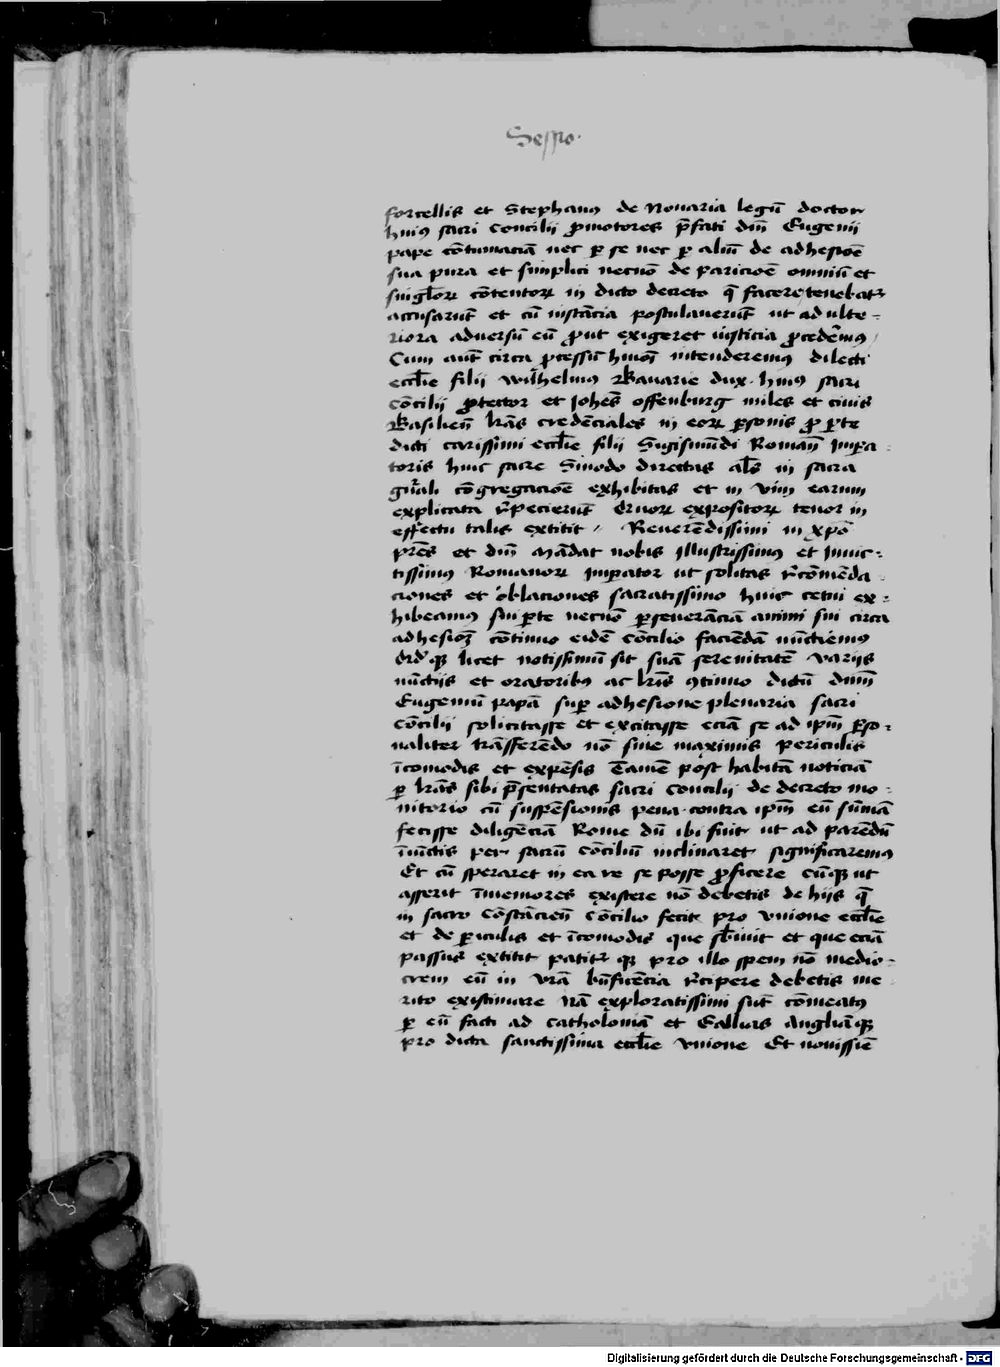 Sessio
forcellis et Stephanus de Nouaria legū doctor
huius sacri Concilii p̄motores p̄fati dnī Eugenii
pape cōtumaciā nec ꝑ se nec ꝑ aliū de adhesiōe
sua pura et simplici necnō de pariciōe omniū et
singl̄oꝝ cōtentoꝝ in dicto decreto q̄ facere tenebat̄
accusarūt et cū instācia postulauerūt ut ad ulte-
riora aduersū eū ꝓut exigeret iusticia ꝓcedēmus
Cum aūt circa ꝓcessū hmōi intenderemus dilecti
eccl̄ie filii Wilhelmus Bauarie dux huius sacri
Cōcilii ꝓtector et Johēs offenburg miles et ciuis
Basilieñ lrās credēciales in eoꝝ ꝑsonis ꝓ ꝑte
dicti carissimi eccl̄ie filii Sigismūdi Romanī Impa-
toris huic sacre Sinodo directas als̄ in sacra
gn̄ali cōgregaciōe exhibitas et in vim earum
explicata r̄pecierūt Quoꝝ expositoꝝ tenor in
effectu talis extitit Reuerēdissimi in xpō
prēs et dnī Mādat nobis Illustrissimus et Inuic-
tissimus Romanoꝝ Imꝑator ut solitas r̄comēda-
ciones et oblaciones sacratissimo huic cetui ex-
hibeamus sui ꝑte necnō ꝑseuerāciā animi sui circa
adhesionē cōtinuo eidē cōcilio faciēdā nūctiemus
Quidqꝫ licet notissimū sit suā serenitatē Variis
nūctiis et oratoribus ac lrīs cōtinuo dictū dnm̄
Eugeniū papā suꝑ adhesione plenaria sacri
Cōcilii solicitasse et excitasse eciā se ad ipm̄ ꝑso-
naliter trāsferēdo nō sine maximis periculis
īcomodis et expēsis Tamē post habitā noticiā
ꝑ lrās sibi p̄sentatas sacri Concilii de decreto mo-
nitorio cū suspēsionis pena contra ipm̄ eū sūmā
fecisse diligēciā Rome dū ibi fuit ut ad parēdū
iūctis per sacrū Cōciliū inclinaret significaremus
Et cū speraret in ea re se posse ꝓficere Cūqꝫ ut
asserit īmemores existere nō debetis de hiis q̄
in sacro Cōstācieñ Cōcilio fecit pro vnione eccl̄ie
et de ꝑiculis et īcomodis que sb̄iuit et que eciā
passus extitit patit̄ qꝫ pro illo spem nō medio-
crem eū in vrā bn̄ficēcia r̄cipere debetis me
rito existimare Nā exploratissimi sūt cōmeatus
ꝑ eū facti ad Catholoniā et Gallias Angliāqꝫ
pro dicta sanctissima eccl̄ie vnione Et nouissīe
Digitalisierung gefördert durch die Deutsche Forschungsgemeinschaft - DFG